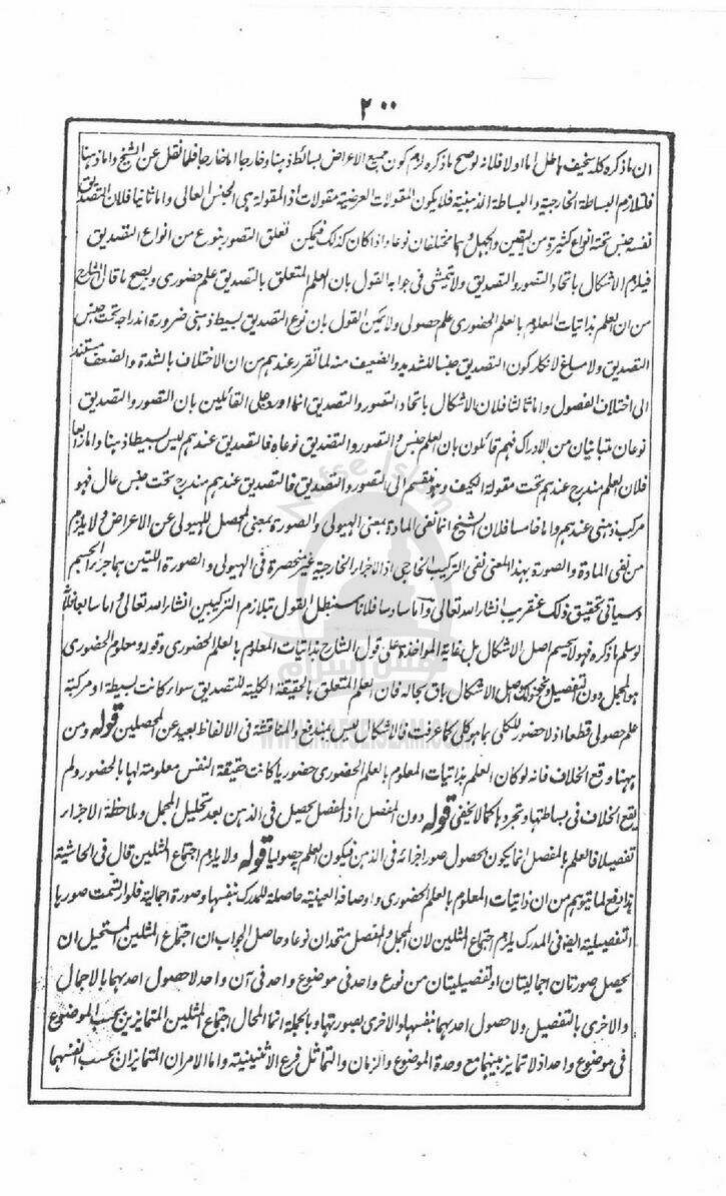 ٢٠٠
ان ما ذكره كله سخيف باطل اما اولا فلانه لو صح ما ذكره لزم كون جميع الاعراض بسائط ذهنا وخارجا اما خارجا فلما نقل عن الشيخ واما ذهنا
فلتلازم البساطة الخارجية والبساطة الذهنية فلا يكون المقولات العرضية مقولات اذ المقولة هى الجنس العالى واما ثانيا فلان التصديق
نفسه جنس تحته انواع كثيرة من اليقين والجهل وهما مختلفان نوعا واذا كان كذلك فيمكن تعلق التصور بنوع من انواع التصديق
فيلزم الاشكال باتحاد التصور والتصديق ولا يتمشى فى جوابه القول بان العلم المتعلق بالتصديق علم حضورى ويصح ما قال الشارح
من ان العلم بذاتيات المعلوم بالعلم الحضورى علم حصولى ولا يمكن القول بان نوع التصديق بسيط ذهنى ضرورة اندراجه تحت جنس
التصديق ولا مساغ لانكار كون التصديق جنسا للشديد والضعيف منه لما تقرر عندهم من ان الاختلاف بالشدة والضعف مستند
الى اختلاف الفصول واما ثالثا فلان الاشكال باتحاد التصور والتصديق انما اورد على القائلين بان التصور والتصديق
نوعان متبائنان من الادراك فهم قائلون بان العلم جنس والتصور والتصديق نوعاه فالتصديق عندهم ليس بسيطا ذهنا واما رابعا
فلان العلم مندرج عندهم تحت مقولة الكيف وهو منقسم الى التصور والتصديق فالتصديق عندهم مندرج تحت جنس عال فهو
مركب ذهنى عندهم واما خامسا فلان الشيخ انما نفى المادة بمعنى الهيولى والصورة بمعنى المحصل للهيولى عن الاعراض ولا يلزم
من نفى المادة والصورة بهذا المعنى نفى التركيب الخارجى اذ الاجزاء الخارجية غير منحصرة فى الهيولى والصورة اللتين هما جزءا الجسم
وسياتى تحقيق ذلك عنقريب انشاء الله تعالى واما سادسا فلانا سنبطل القول بتلازم التركيبين انشاء الله تعالى واما سابعا فلانه
لو سلم ما ذكره فهو لا يحسم اصل الاشكال بل غاية المواخذة على قول الشارح بذاتيات المعلوم بالعلم الحضورى وقوله ومعلوم الحضورى
هو المجمل دون التفصيل اصل الاشكال باق بحاله فان العلم المتعلق بالحقيقة الكلية للتصديق سواء كانت بسيطة او مركبة
علم حصولى قطعا اذ لا حضور للكلى بما هو كلى كما عرفت فالاشكال ليس بمندفع والمناقشة فى الالفاظ بعيد عن المحصلين قوله ومن
ههنا وقع الخلاف فانه لو كان العلم بذاتيات المعلوم بالعلم الحضورى حضوريا كانت حقيقة النفس معلومة لها بالحضور ولم
يقع الخلاف فى بساطتها وتجردها كما لا يخفى قوله دون المفصل اذ المفصل يحصل فى الذهن بعد تحليل المجمل وملاحظة الاجزاء
تفصيلا فالعلم بالمفصل انما يكون بحصول صور اجزائه فى الذهن فيكون العلم حصوليا قوله ولا يلزم اجتماع المثلين قال فى الحاشية
هذا دفع لما يتوهم من ان ذاتيات المعلوم بالعلم الحضورى واوصافه العينية حاصلة للمدرك بنفسها وصورة اجمالية فلو ارتسمت صورها
التفصيلية ايضا فى المدرك يلزم اجتماع المثلين لان المجمل والمفصل متحدان نوعا وحاصل الجواب ان اجتماع المثلين المستحيل ان
يحصل صورتان اجماليتان او تفصيليتان من نوع واحد فى موضوع واحد فى آن واحد لا حصول احدهما بالاجمال
والاخرى بالتفصيل ولا حصول احدهما بنفسها والاخرى بصورتها وبالجملة انما المحال اجتماع المثلين المتمايزين بحسب الموضوع
فى موضوع واحد اذ لا تمايز بينهما مع وحدة الموضوع والزمان والتماثل فرع الاثنينية واما الامران المتمايزان بحسب انفسهما
Nafse Islam
نفس اسلام
WWW.NAFSEISLAM.COM